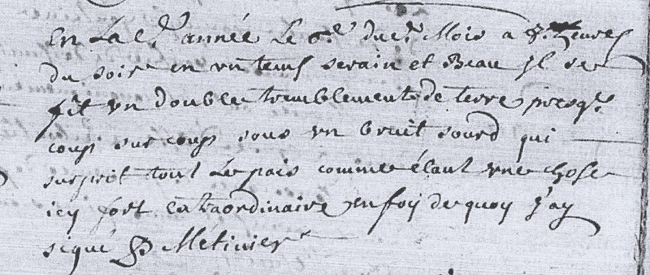 En La d.e année Le 6.e du d.t Mois a 8. heures
du soir en un tems serain et Beau Jl se
fit vn double tremblement de terre presq.
coup sur coup sous vn bruit sourd qui
surprit tout Le païs comme étant vne chose
icy fort Extraordinaire en foy de quoy J'ay
signé Metivier